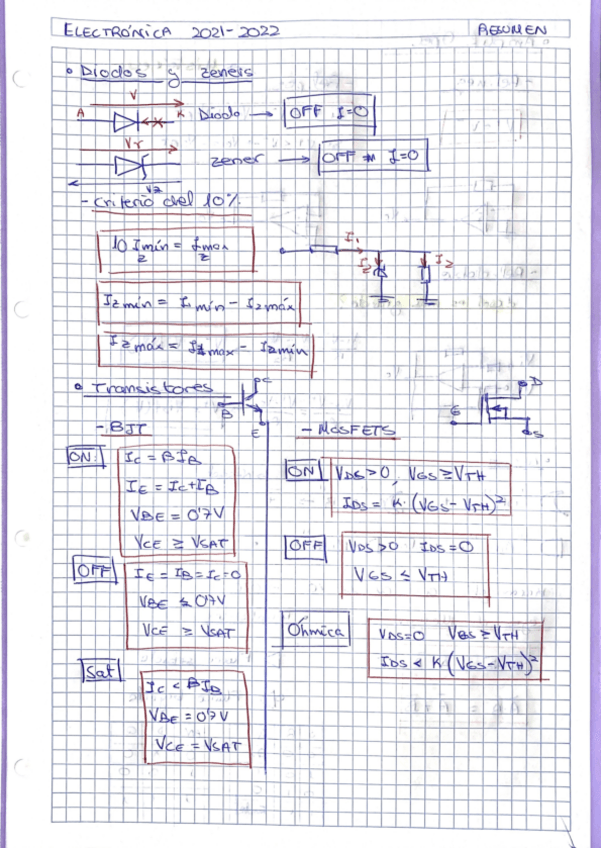 ELECTRÓNICA 2021-2022 RESUMEN
• Diodos y zeners
V
A K Diodo → OFF I=0
Vr
zener → OFF I=0
Vz
- Criterio del 10%
10 Izmín = Izmax
I1
Iz I2
Izmín = I1 mín - I2 máx
Izmáx = I1 max - I2 mín
• Transistores
C
B
E
D
G
S
- BJT
- MOSFETS
ON:
IC = βIB
IE = IC+IB
VBE = 0'7V
VCE ≥ VSAT
ON
VDS>0, VGS≥VTH
IDS = K·(VGS-VTH)²
OFF
IE = IB = IC = 0
VBE ≤ 0'7V
VCE ≥ VSAT
OFF
VDS>0 IDS=0
VGS ≤ VTH
Óhmica
VDS=0 VGS≥VTH
IDS < K(VGS-VTH)²
Sat
IC < βIB
VBE = 0'7V
VCE = VSAT